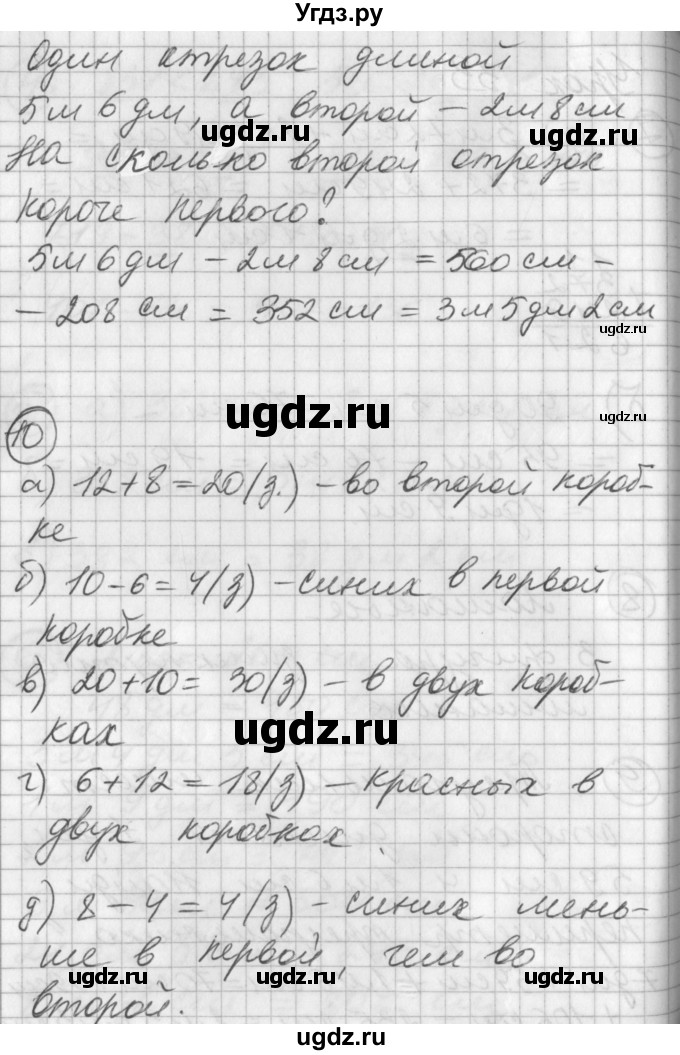 Угдз.ру
Один отрезок длиной
5м 6дм, а второй – 2м 8см
На сколько второй отрезок
короче первого?
5м 6дм – 2м 8см = 560см –
– 208 см = 352см = 3м 5дм 2см
10
а) 12+8=20(з.) – во второй короб-
ке
б) 10–6=4(з) – синих в первой
коробке
в) 20+10= 30(з) – в двух короб-
ках
г) 6+12=18(з) – красных в
двух коробках.
д) 8–4=4(з) – синих мень-
ше в первой, чем во
второй.
ugdz.ru
ugdz.ru
ugdz.ru
ugdz.ru
ugdz.ru
ugdz.ru
ugdz.ru
ugdz.ru
ugdz.ru
ugdz.ru